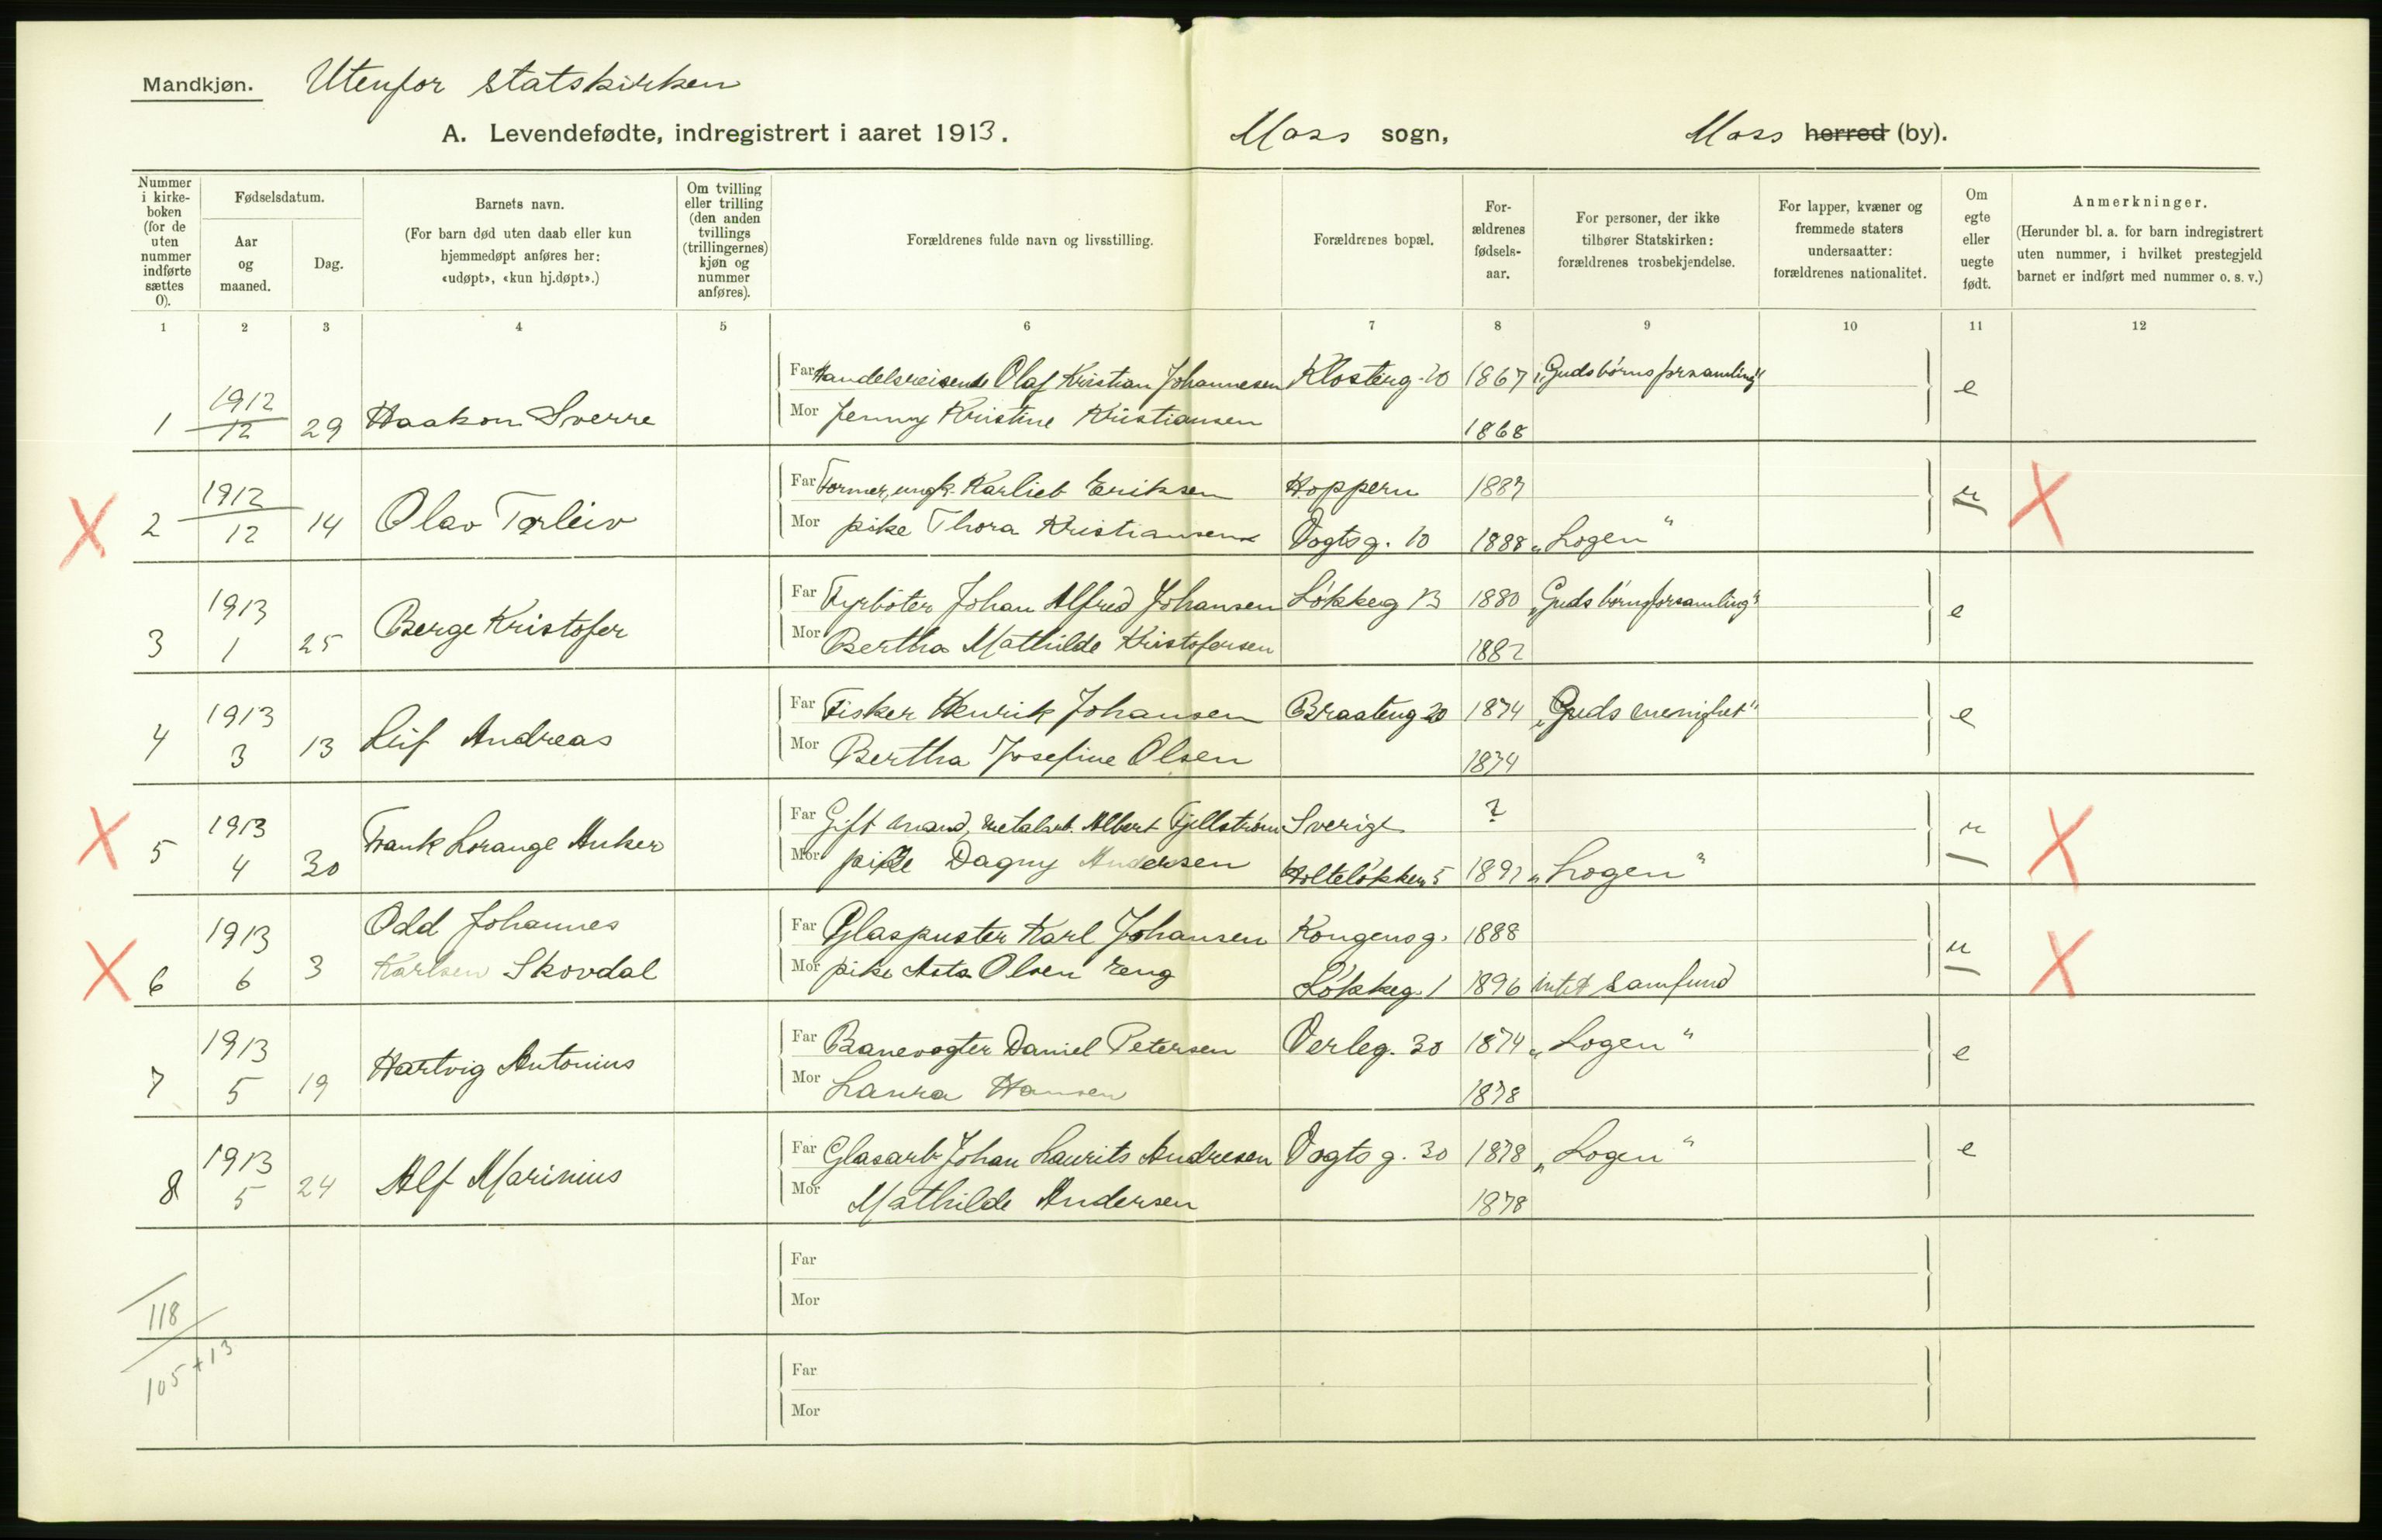 Mandkjøn. Utenfor statskirken
A. Levendefødte, indregistrert i aaret 1913. Moss sogn, Moss herred (by).
Nummer i kirkeboken (for de uten nummer indførte sættes 0).
Fødselsdatum.
Aar og maaned.
Dag.
Barnets navn.
(For barn død uten daab eller kun hjemmedøpt anføres her: «udøpt», «kun hj.døpt».)
Om tvilling eller trilling (den anden tvillings (trillingernes) kjøn og nummer anføres).
Forældrenes fulde navn og livsstilling.
Forældrenes bopæl.
Forældrenes fødselsaar.
For personer, der ikke tilhører Statskirken: forældrenes trosbekjendelse.
For lapper, kvæner og fremmede staters undersaatter: forældrenes nationalitet.
Om egte eller uegte født.
Anmerkninger.
(Herunder bl. a. for barn indregistrert uten nummer, i hvilket prestegjeld barnet er indført med nummer o. s. v.)
1 2 3 4 5 6 7 8 9 10 11 12
Far Handelsreisende Olaf Kristian Johannesen Klosterg. 10 1867 „Guds børns forsamling“ e
1 1912 12 29 Haakon Sverre
Mor Jenny Kristine Kristiansen 1868
Far Former, ungk. Karlieb Eriksen Hoppern 1887 u X
X 2 1912 12 14 Olav Torleiv
Mor pike Thora Kristiansen Vogtsg. 10 1888 „Logen“
Far Fyrbøter Johan Alfred Johansen Løkkeg 13 1880 „Guds børns forsamling“ e
3 1913 1 25 Berge Kristofer
Mor Bertha Mathilde Kristofersen 1882
Far Fisker Henrik Johansen Braateng 20 1874 „Guds menighet“ e
4 1913 3 13 Leif Andreas
Mor Bertha Josefine Olsen 1874
Far Gift mand, metalarb. Albert Fjellstrøm Sverige ? u X
X 5 1913 4 30 Frank Lorange Anker
Mor pike Dagny Andersen Holteløkken 5 1892 „Logen“
Far Glaspuster Karl Johansen Kongensg. 1888 u X
X 6 1913 6 3 Odd Johannes
Karlsen Skovdal
Mor pike Asta Olsen Løkkeg. 1 1896 intet samfund
Far Banevogter Daniel Petersen Verleg. 30 1874 „Logen“ e
7 1913 5 19 Hartvig Antonius
Mor Laura Hansen 1878
Far Glasarb Johan Laurits Andresen Vogts g. 30 1878 „Logen“ e
8 1913 5 24 Alf Marinius
Mor Mathilde Andersen 1878
Far
Mor
118
105+13
Far
Mor